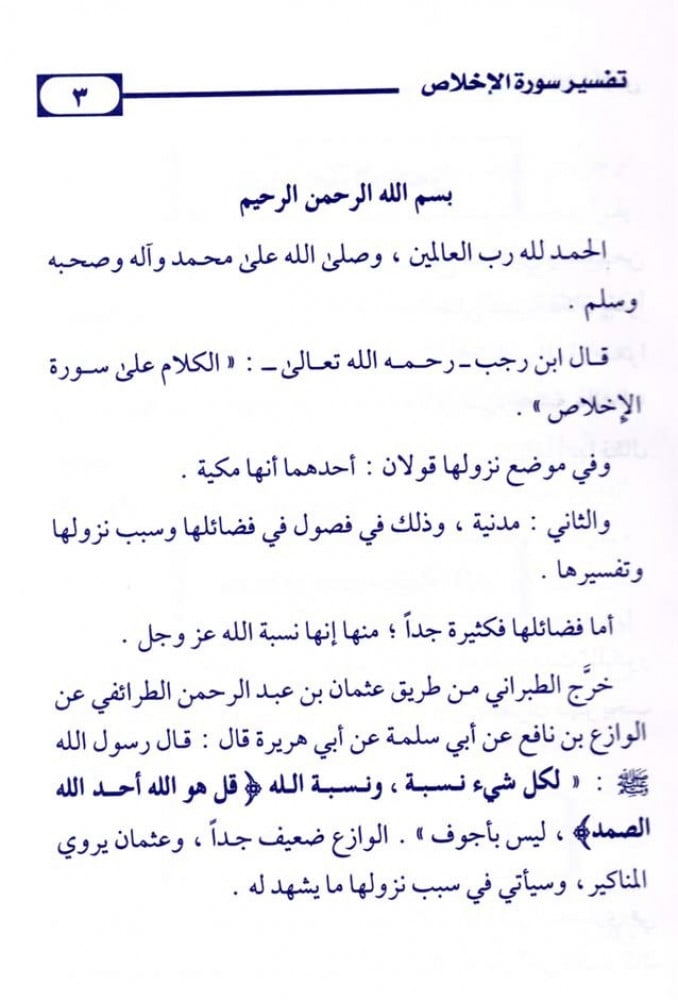 تفسير سورة الإخلاص
٣
بسم الله الرحمن الرحيم
الحمد لله رب العالمين ، وصلىٰ الله علىٰ محمد وآله وصحبه
وسلم .
قال ابن رجب ـ رحمه الله تعالىٰ ـ : « الكلام علىٰ سورة
الإخلاص » .
وفي موضع نزولها قولان : أحدهما أنها مكية .
والثاني : مدنية ، وذلك في فصول في فضائلها وسبب نزولها
وتفسيرها .
أما فضائلها فكثيرة جداً ؛ منها إنها نسبة الله عز وجل .
خرَّج الطبراني من طريق عثمان بن عبد الرحمن الطرائفي عن
الوازع بن نافع عن أبي سلمة عن أبي هريرة قال : قال رسول الله
ﷺ : « لكل شيء نسبة ، ونسبة الله ﴿ قل هو الله أحد الله
الصمد﴾ ، ليس بأجوف » . الوازع ضعيف جداً ، وعثمان يروي
المناكير ، وسيأتي في سبب نزولها ما يشهد له .